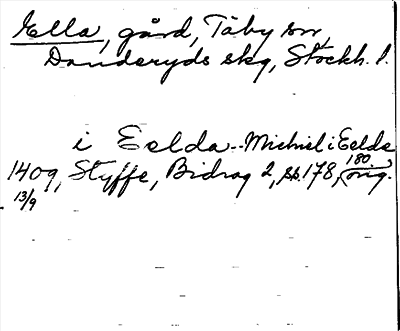 Ella, gård, Täby sn,
Danderyds skg, Stockh. l.
i Eelda -- Michiel i Eelda
180
1409, Styffe, Bidrag 2, ss. 178, (orig.)
13/9